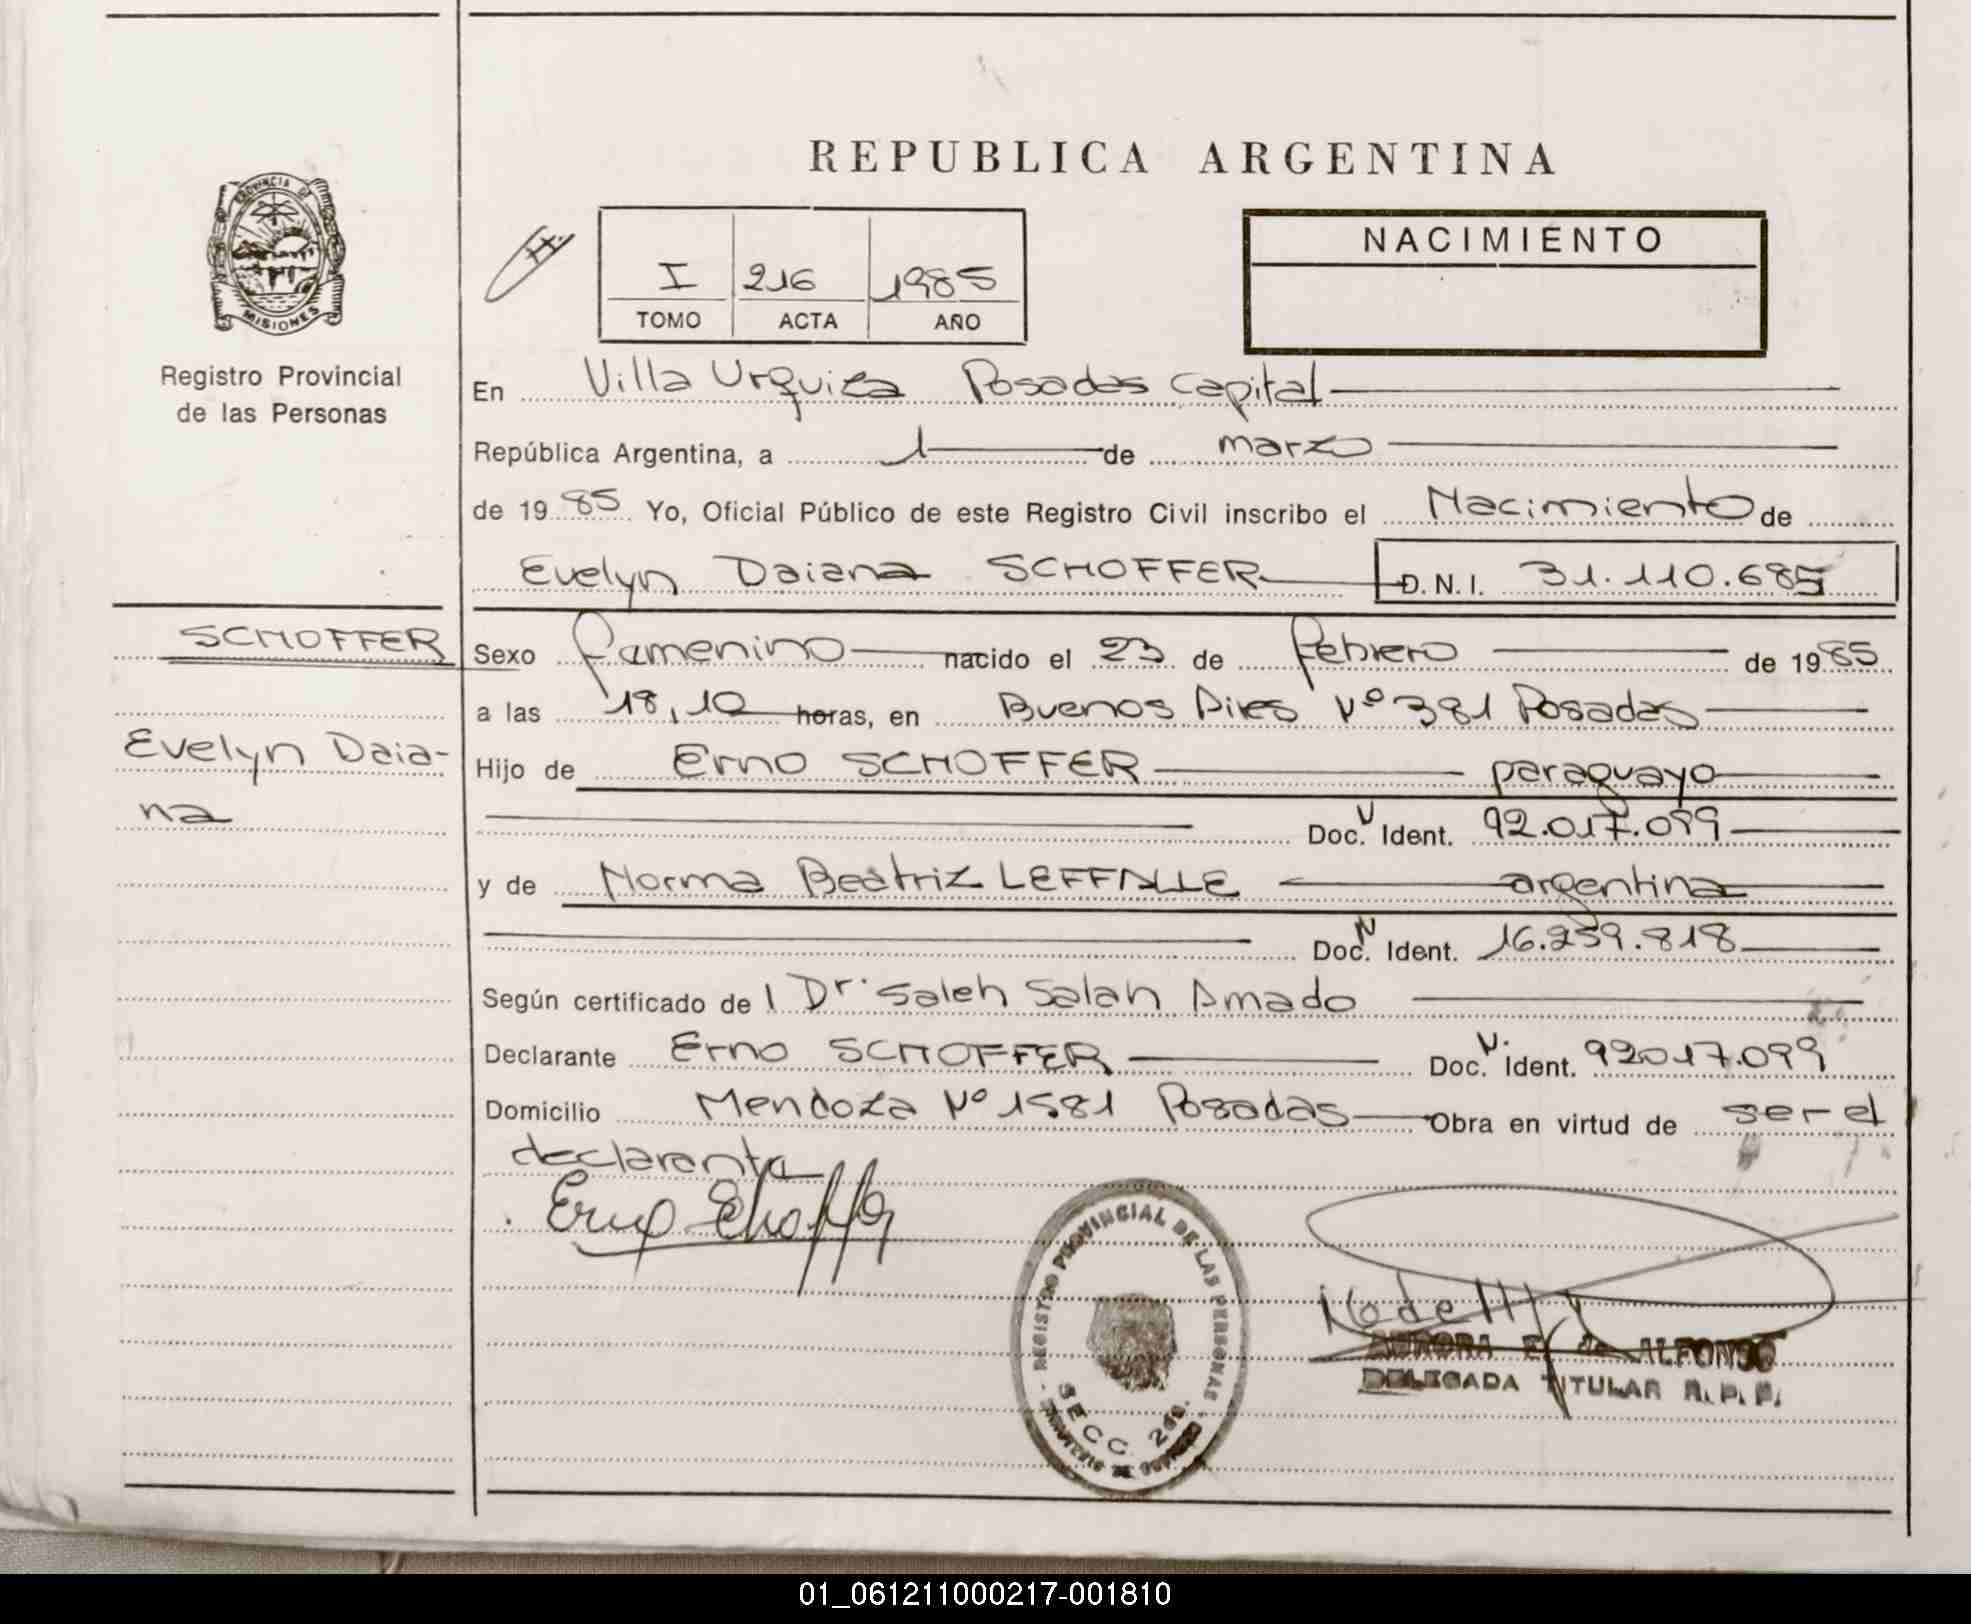 REPUBLICA ARGENTINA
PROVINCIA DE
MISIONES
Registro Provincial
de las Personas
I 216 1985
TOMO ACTA AÑO
NACIMIENTO
En Villa Urquiza Posadas Capital
República Argentina, a 1 de marzo
de 1985 Yo, Oficial Público de este Registro Civil inscribo el Nacimiento de
Evelyn Daiana SCHOFFER D.N.I. 31.110.685
SCHOFFER
Evelyn Daia-
na
Sexo famenino nacido el 23 de febrero de 1985
a las 18,10 horas, en Buenos Aires Nº 381 Posadas
Hijo de Erno SCHOFFER paraguayo
Doc. N Ident. 92.017.099
y de Norma Beatriz LEFFALLE argentina
Doc. N Ident. 16.259.818
Según certificado de l Dr. Saleh Salah Amado
Declarante Erno SCHOFFER Doc. N. Ident. 92017.099
Domicilio Mendoza Nº 1581 Posadas Obra en virtud de ser el
declarante
Erno Schoffer
REGISTRO PROVINCIAL DE LAS PERSONAS
SECC. 2da.
MINISTERIO DE GOBIERNO
AURORA E. de ALFONSO
DELEGADA TITULAR R. P. P.
01_061211000217-001810